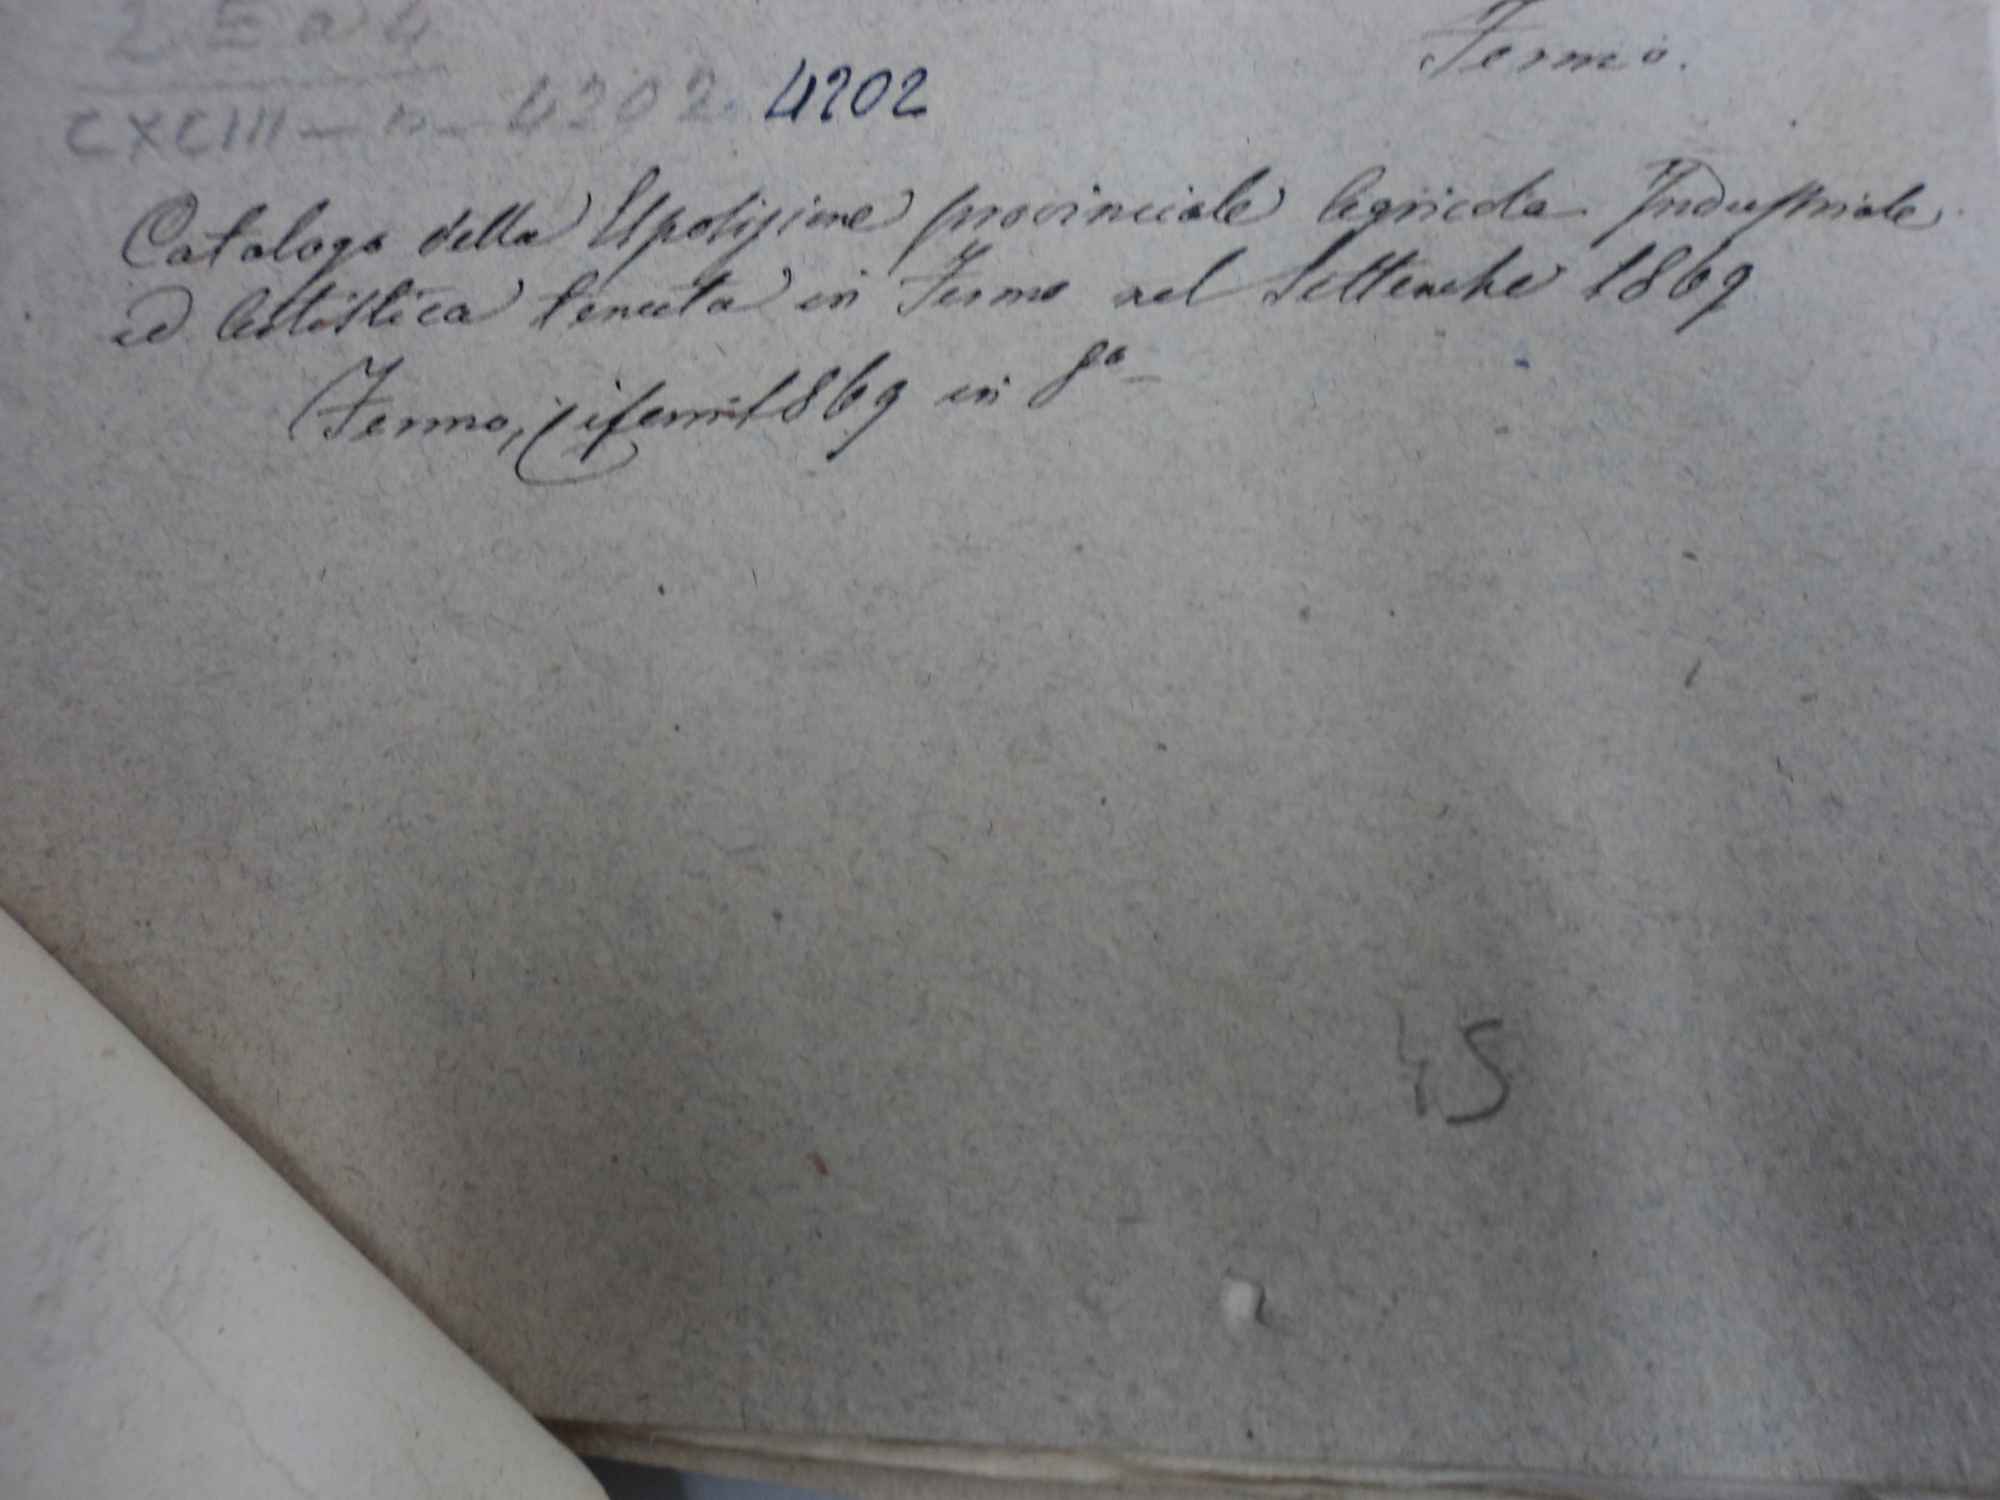 2 E a 4
Fermo.
CXCIII - n - 4202. 4202
Catalogo della Esposizione provinciale Agricola Industriale
ed Artistica tenuta in Fermo nel Settembre 1869
Fermo, 1869 in 8º
45